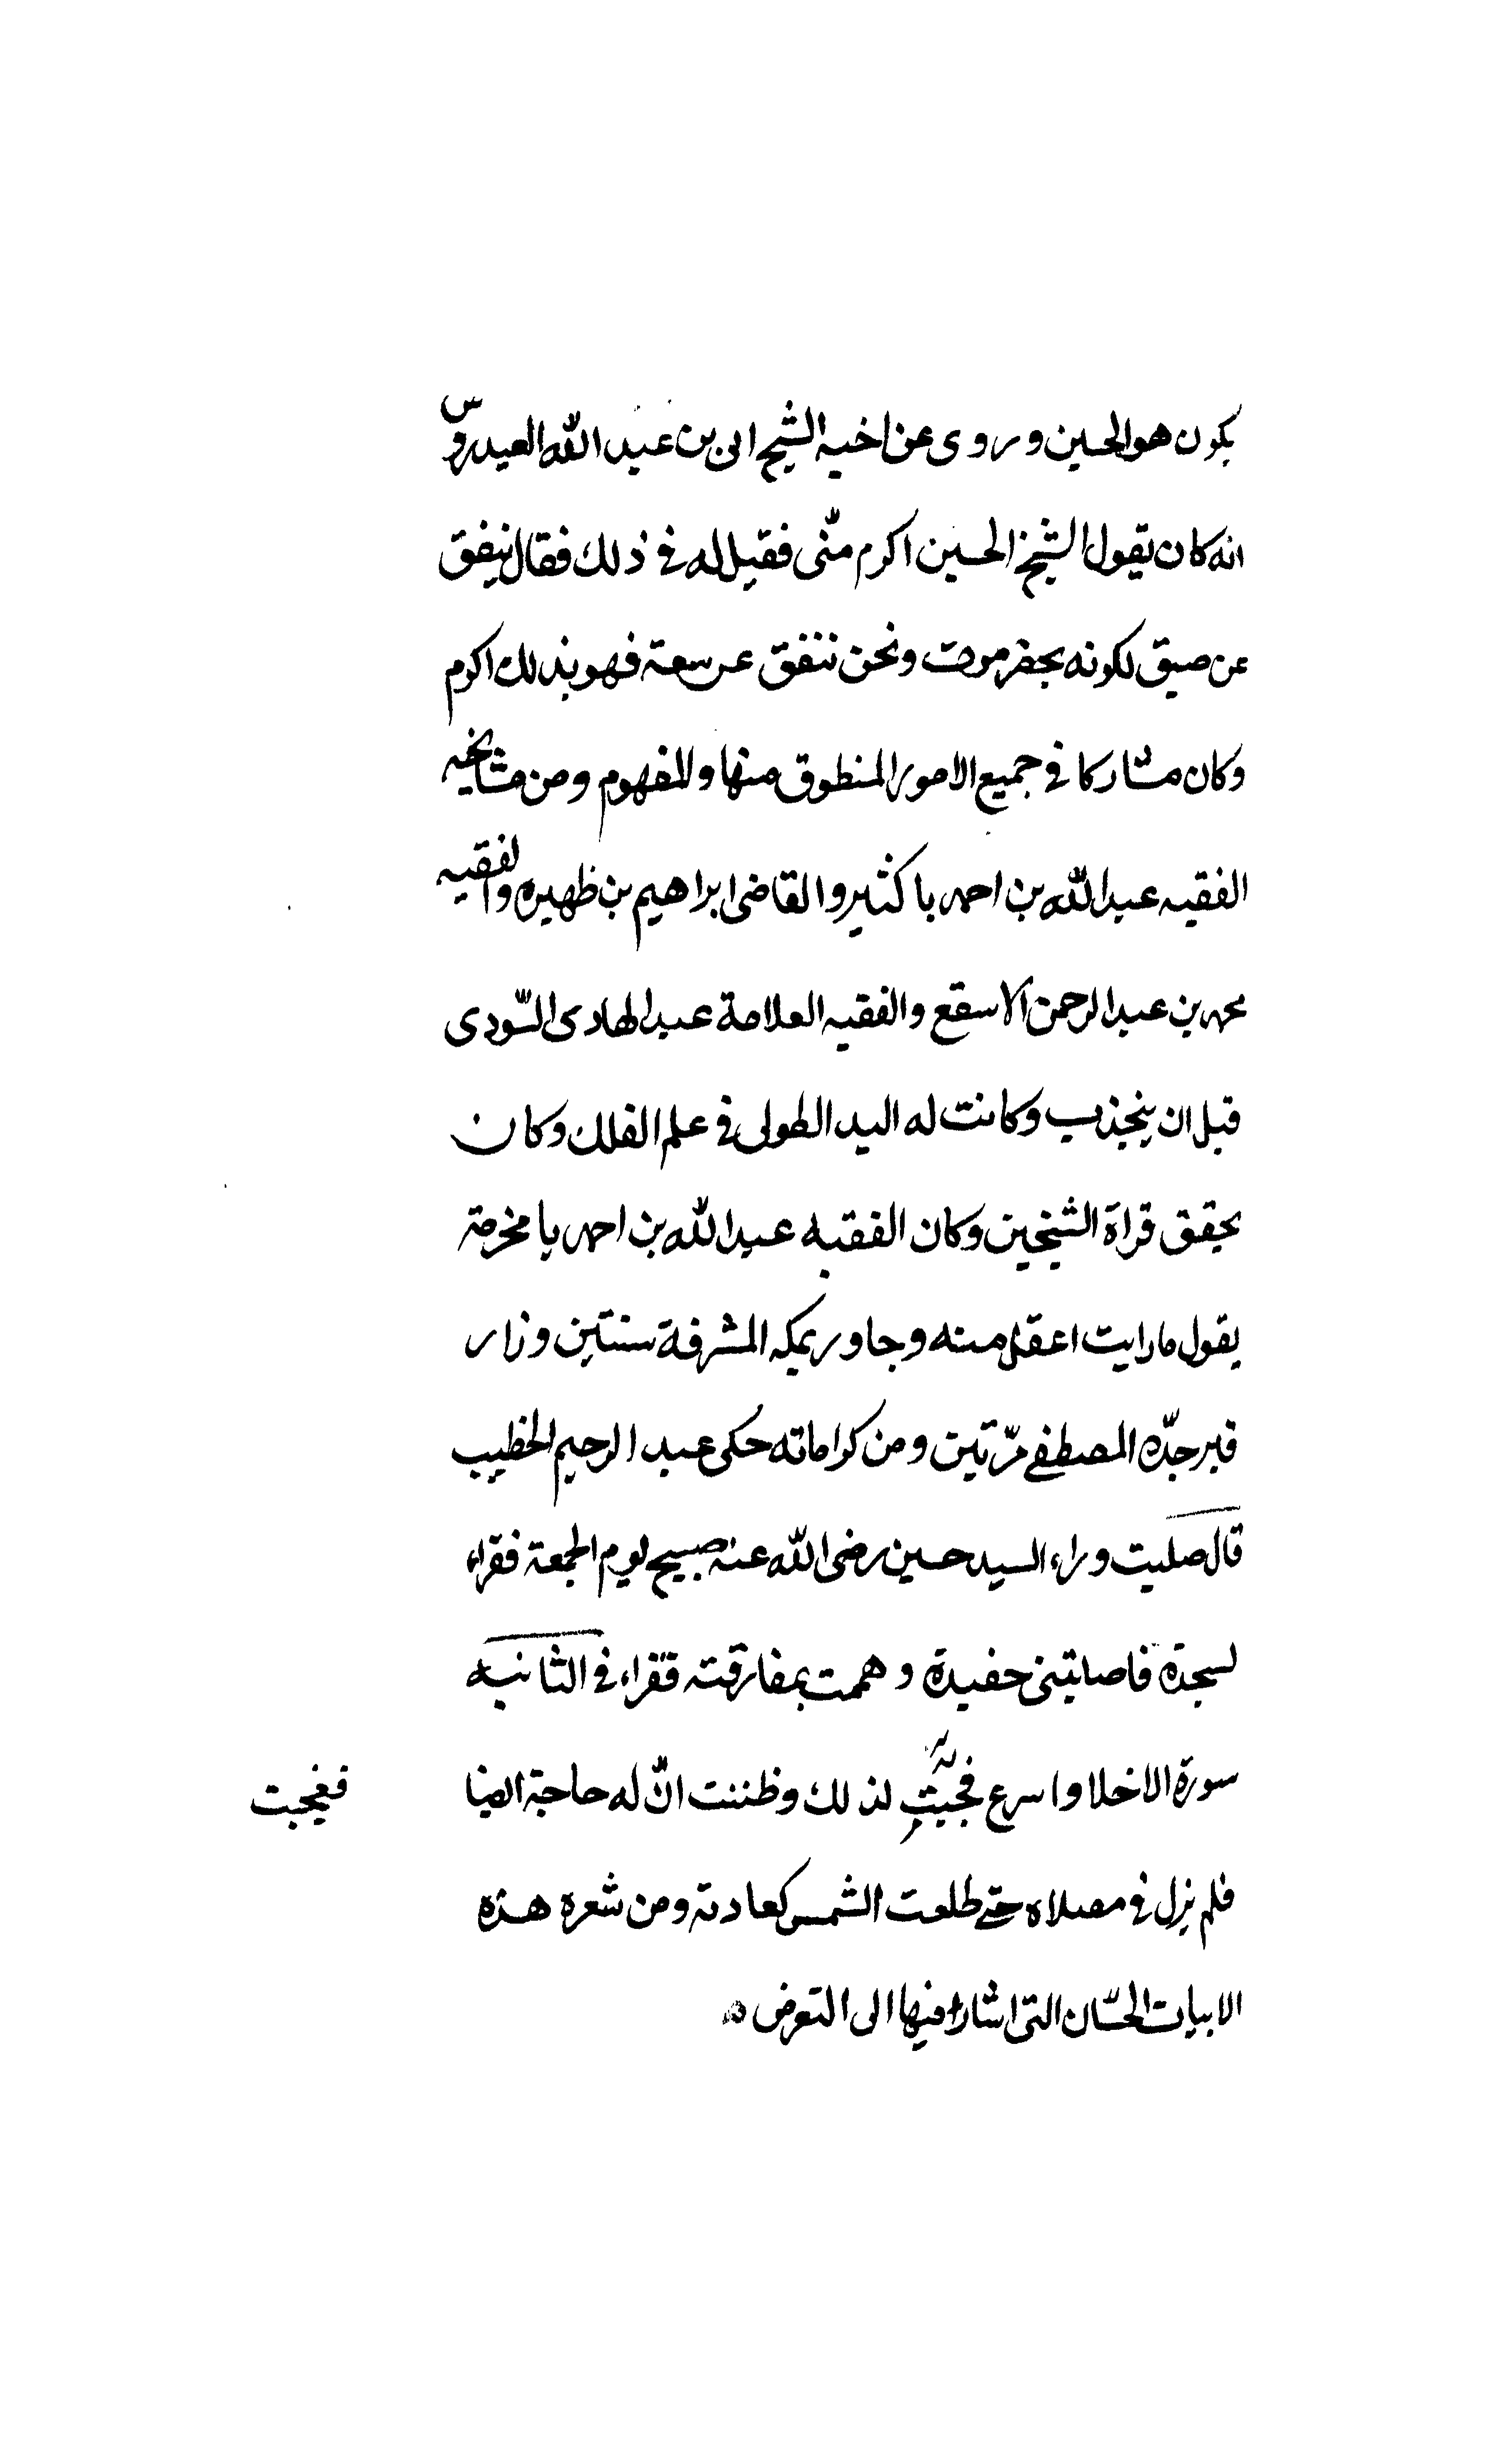 يكون هو الحسين وروى عن اخيه الشيخ ابى بن عبد الله العيدروس
انه كان يقول الشيخ الحسين اكرم منّى فقيل له فى ذلك فقال ينفق
عن ضيق لكونه بحضرموت ونحن ننفق عن سعة فهو بذلك اكرم
وكان مشاركا فى جميع الامور المنطوق منها والمفهوم ومن مشايخه
الفقيه عبد الله بن احمد باكثير والقاضى ابراهيم بن ظهيره والفقيه
محمد بن عبد الرحمن الاسقع والفقيه العلامة عبد الهادى السّودى
قبل ان ينجذب وكانت له اليد الطولى فى علم الفلك وكان
يحقق قراة الشيخين وكان الفقيه عبد الله بن احمد با مخرمة
يقول ما رايت اعقل منه وجاور بمكه المشرفة سنتين وزار
قبر جدّه المصطفى مرّتين ومن كراماته حكى عبد الرحيم الخطيب
قال صليت وراء السيد حسين رضى الله عنه صبيح يوم الجمعة فقراء
لسجدة فاصابتنى حفيدة وهممت بمفارقته فقراء فى الثانيه
سورة الاخلا واسرع فجيت لذلك وظننت انّ له حاجة ايضا
فعجبت
فلم يزل فى مصلاه حتى طلعت الشمس كعادته ومن شعره هذه
الابيات الحسّان التى اشار فيها الى التعرض